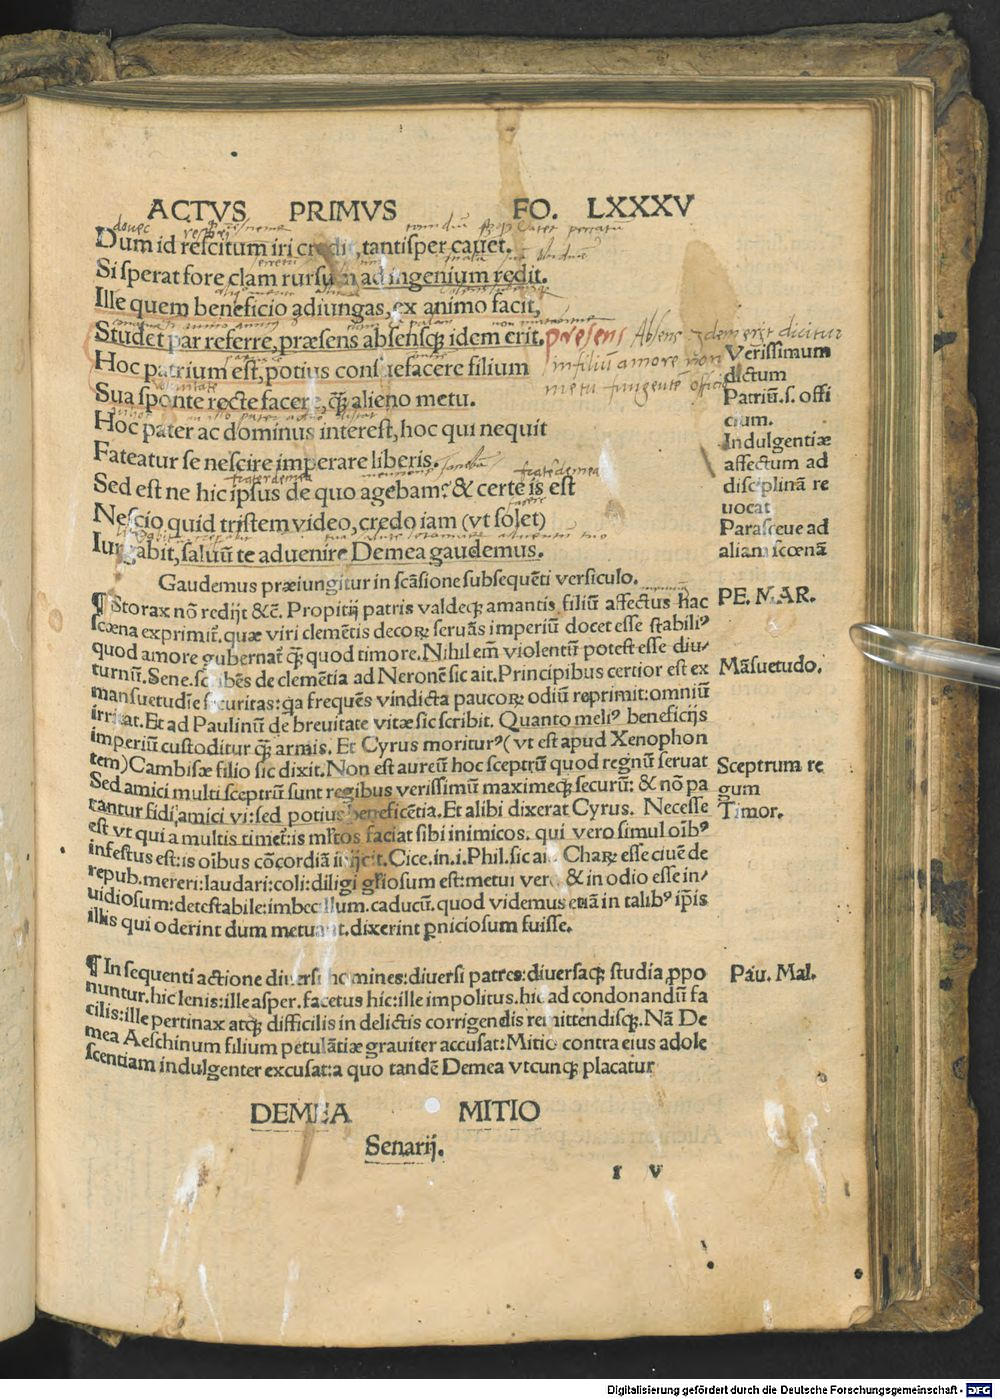 ACTVS PRIMVS FO. LXXXV
donec
Dum id rescitum iri credit, tantisper cauet.
Si sperat fore clam rursum ad ingenium redit.
Ille quem beneficio adiungas, ex animo facit,
Studet par referre, præsens absensqꝫ idem erit.
presens Absens idem erit dicitur
in filiũ amore non
metu fungentẽ officio
Verissimum
dictum
Hoc patrium est, potius consuefacere filium
voluntate
Sua sponte recte facere, q̃ꝫ alieno metu.
Patriũ.s. offi
cium.
Hoc pater ac dominus interest, hoc qui nequit
Fateatur se nescire imperare liberis.
Indulgentiæ
affectum ad
disciplinã re
uocat
frater demea
fratẽ demea
Sed est ne hic ipsus de quo agebam? & certe is est
Nescio quid tristem video, credo iam (vt solet)
Iurgabit, saluũ te aduenire Demea gaudemus.
Parasceue ad
aliam scœnã
Gaudemus præiungitur in scãsione subsequẽti versiculo.
¶ Storax nõ redijt &c̃. Propitij patris valdeqꝫ amantis filiũ affectus hac
PE. MAR.
scœna exprimit̃. quæ viri clemẽtis decoꝝ seruãs imperiũ docet esse stabili⁹
quod amore gubernat̃ q̃ꝫ quod timore. Nihil em̃ violentũ potest esse diu/
turniũ. Sene. scribẽs de clemẽtia ad Neronẽ sic ait. Principibus certior est ex
Mãsuetudo.
mansuetudĩe securitas: q̃a frequẽs vindicta paucoꝝ odiũ reprimit: omniũ
irritat. Et ad Paulinũ de breuitate vitæ sic scribit. Quanto meli⁹ beneficijs
imperiũ custoditur q̃ꝫ armis. Et Cyrus moritur⁹ (vt est apud Xenophon
tem) Cambisæ filio sic dixit. Non est aureũ hoc sceptrũ quod regnũ seruat
Sceptrum re
gum
Sed amici multi sceptrũ sunt regibus verissimũ maximeqꝫ securũ: & nõ pa
rantur fidi amici vi: sed potius beneficẽtia. Et alibi dixerat Cyrus. Necesse
Timor.
est vt qui a multis timet̃: is ml̃tos faciat sibi inimicos. qui vero simul oĩb⁹
infestus est: is oĩbus cõcordiã inijcit. Cice. in. i. Phil. sic ait. Charꝫ esse ciuẽ de
repub. mereri: laudari: coli: diligi gl̃iosum est: metui vero & in odio esse in/
uidiosum: detestabile: imbecillum. caducũ. quod videmus etiã in talib⁹ ip̃is
illis qui oderint dum metuant. dixerint ꝑniciosum fuisse.
¶ In sequenti actione diuersi homines: diuersi patres: diuersaqꝫ studia ꝓpo
Pau. Mal.
nuntur. hic lenis: ille asper. facetus hic: ille impolitus. hic ad condonandũ fa
cilis: ille pertinax atqꝫ difficilis in delictis corrigendis remittendisqꝫ. Nã De
mea Aeschinum filium petulãtiæ grauiter accusat: Mitio contra eius adole
scentiam indulgenter excusat: a quo tandẽ Demea vtcunqꝫ placatur
DEMEA MITIO
Senarij.
Digitalisierung gefördert durch die Deutsche Forschungsgemeinschaft - DFG